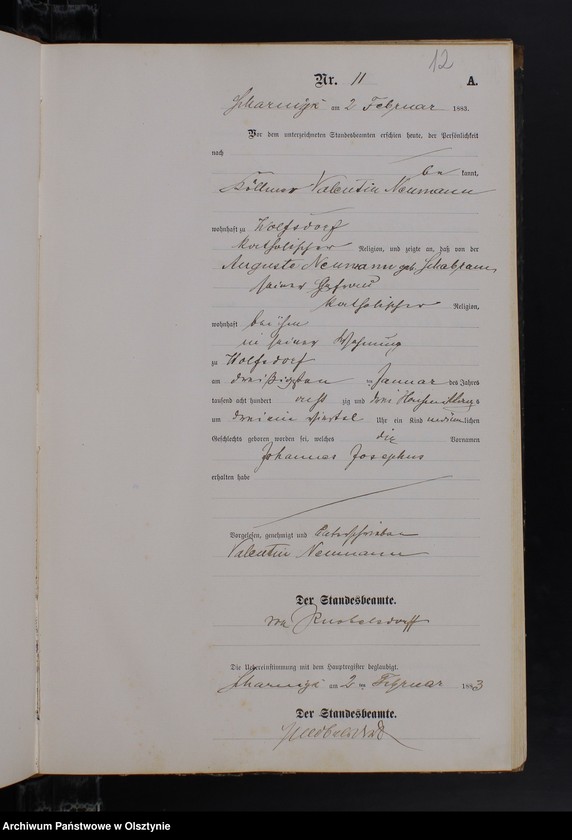 12
Nr. 11 A.
Scharnigk am 2 Februar 1883.
Vor dem unterzeichneten Standesbeamten erschien heute, der Persönlichkeit
nach
be kannt,
Köllmer Valentin Neumann
wohnhaft zu Wolfsdorf
katholischer Religion, und zeigte an, daß von der
Auguste Neumann geb.
seiner Ehefrau
katholischer Religion,
wohnhaft bei ihm
in seiner Wohnung
zu Wolfsdorf
am dreißigsten Januar des Jahres
tausend acht hundert acht zig und drei
um drei ein viertel Uhr ein Kind männlichen
Geschlechts geboren worden sei, welches die Vornamen
Johannes Josephus
erhalten habe
Vorgelesen, genehmigt und unterschrieben
Valentin Neumann
Der Standesbeamte.
von Knobelsdorff
Die Uebereinstimmung mit dem Hauptregister beglaubigt.
Scharnigk am 2 Februar 1883
Der Standesbeamte.
Archiwum Państwowe w Olsztynie